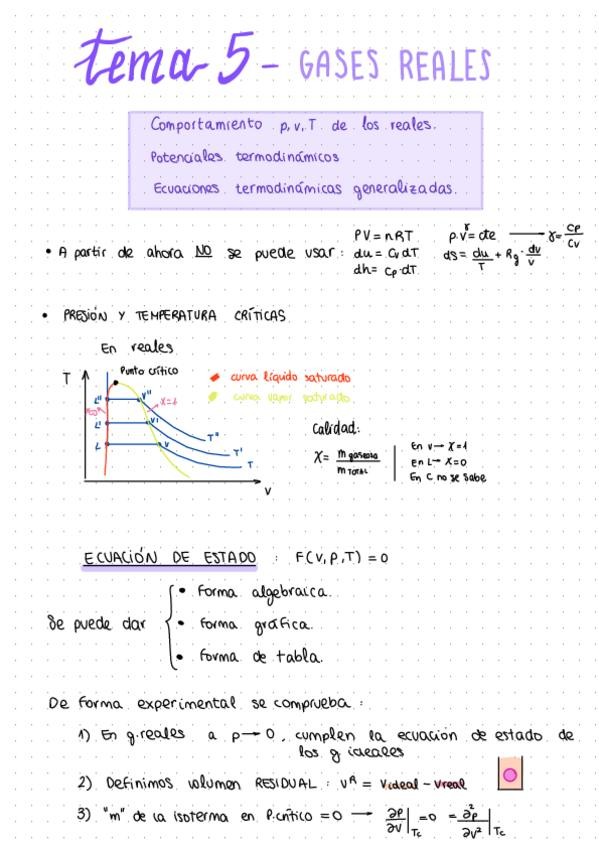 tema 5 - GASES REALES
Comportamiento p, v, T de los reales.
Potenciales termodinámicos
Ecuaciones termodinámicas generalizadas.
PV = nRT p·v^γ = cte → γ = Cp/Cv
• A partir de ahora NO se puede usar: du = Cv dT ds = du/T + Rg · dv/v
dh = Cp·dT
• PRESIÓN Y TEMPERATURA CRÍTICAS
En reales
T Punto crítico
curva líquido saturado
curva vapor saturado
L'' V'' X=1
L' V'
L V
T''
T'
T
V
Calidad:
X = m gaseosa / m TOTAL
En V → X=1
En L → X=0
En C no se sabe
ECUACIÓN DE ESTADO : F(V, P, T) = 0
Se puede dar
• Forma algebraica.
• Forma gráfica.
• Forma de tabla.
De forma experimental se comprueba:
1) En g.reales a p → 0, cumplen la ecuación de estado de
los g ideales
2) Definimos volumen RESIDUAL : V^R = Videal - Vreal
3) "m" de la isoterma en P.crítico = 0 → ∂p/∂v|Tc = 0 = ∂²p/∂v²|Tc